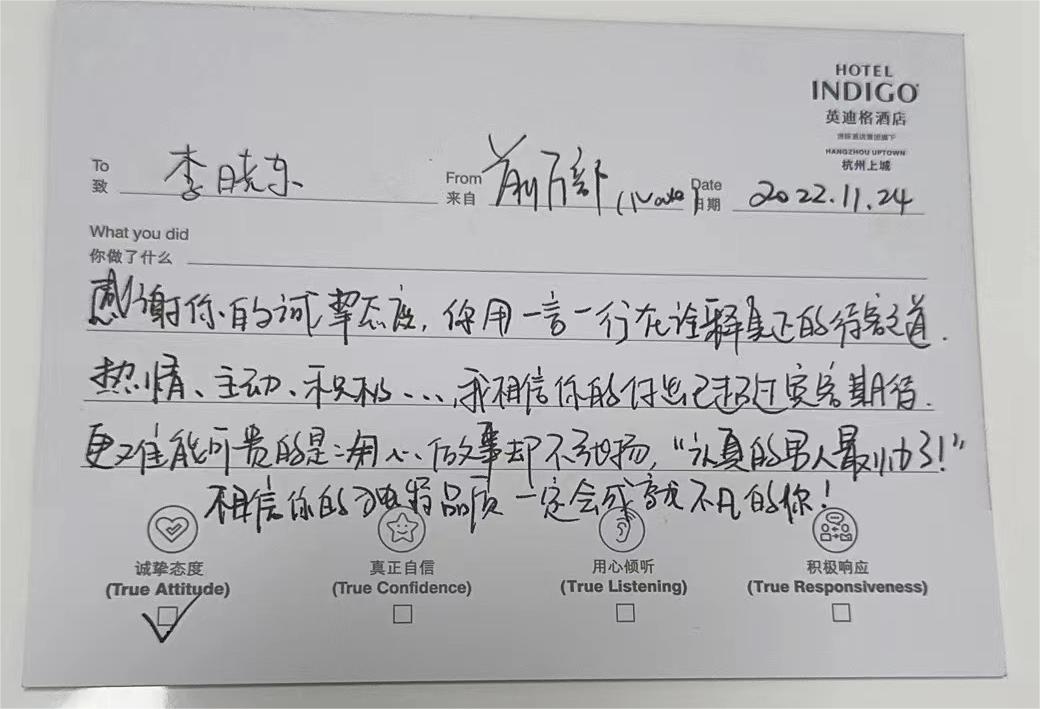 HOTEL
INDIGO
英迪格酒店
洲际酒店集团旗下
HANGZHOU UPTOWN
杭州上城
To 李晓东 From 前厅部 Date 2022.11.24
致 来自 日期
What you did
你做了什么
感谢你的诚挚态度，你用一言一行在诠释真正的待客之道.
热情、主动、积极...,我相信你的付出已超过宾客期待.
更难能可贵的是:用心做事却不张扬，“认真的男人最帅了!”
相信你的独特品质一定会成就不凡的你!
诚挚态度 真正自信 用心倾听 积极响应
(True Attitude) (True Confidence) (True Listening) (True Responsiveness)